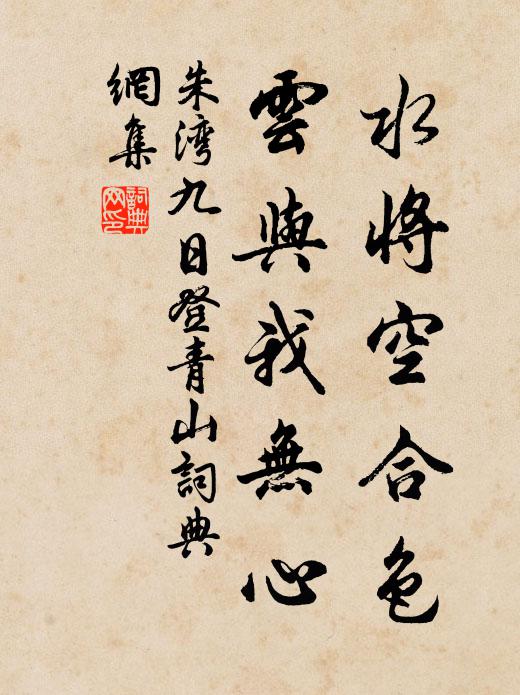 水將空合色
雲與我無心
朱灣九日登青山詞典
網集
詞典
网印